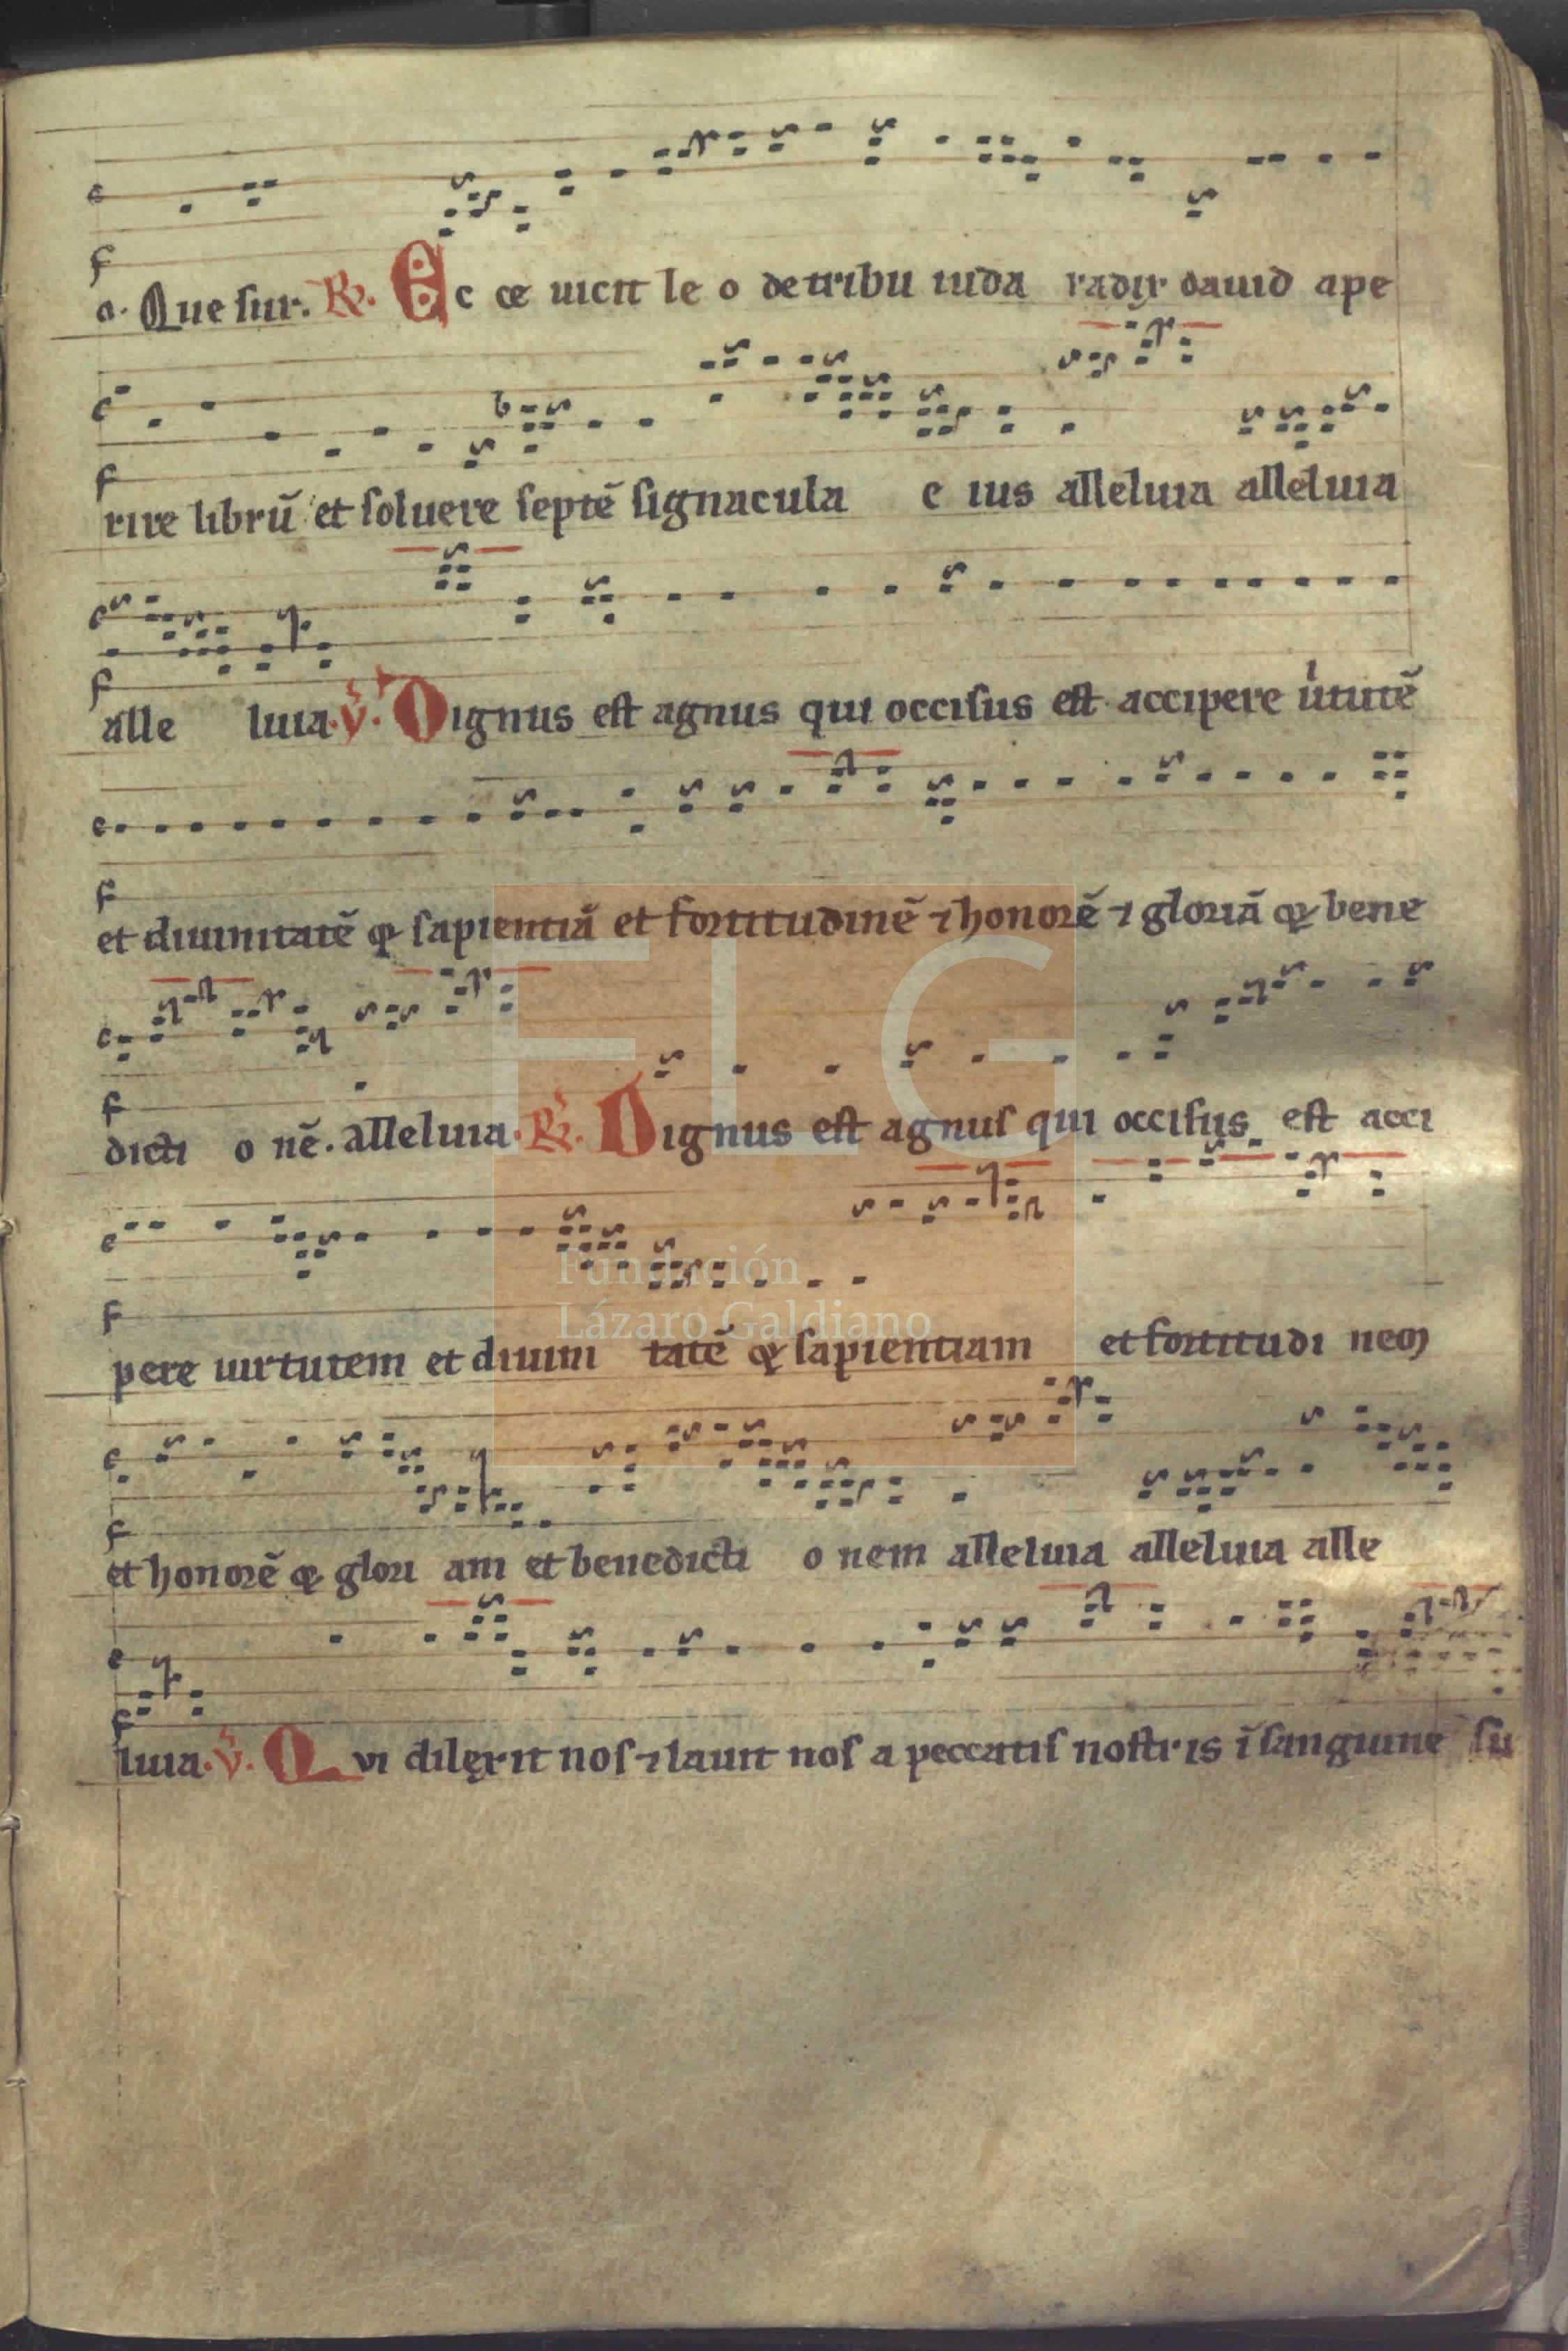 a. Que sur. R. Ec ce uicit le o de tribu iuda radix dauid ape
rire librū et soluere septē signacula e ius alleluia alleluia
alle luia. V. Dignus est agnus qui occisus est accipere ututē
et diuinitatē et sapientiā et fortitudinē ⁊ honorē ⁊ gloriā et bene
dicti o nē. alleluia. R. Dignus est agnus qui occisus est acci
pere uirtutem et diuini tatē et sapientiam et fortitudi nem
et honorē et glori am et benedicti o nem alleluia alleluia alle
luia. V. Qui dilexit nos ⁊ lauit nos a peccatis nostris ī sanguine su
FLG
Fundación
Lázaro Galdiano